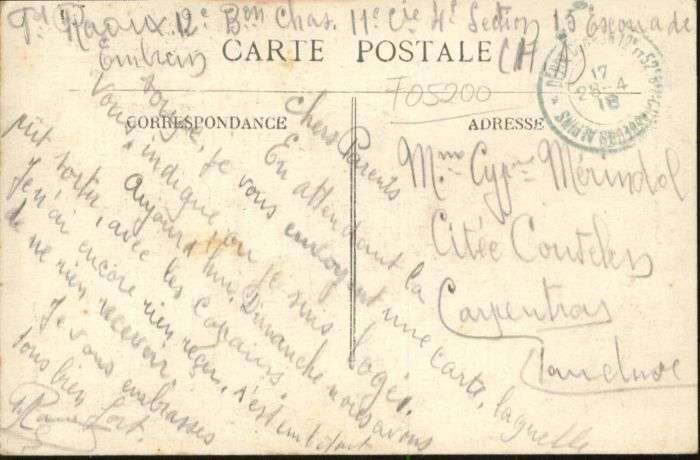 Raoux. 12e Bon Chas. 11e Cie 4e Section 15 Escouade
Embrun (H A)
CARTE POSTALE
705200
17
28-4
18
CORRESPONDANCE
ADRESSE
Chers Parents
En attendant la
soupe, je vous envoyent une carte, laquelle
vous indique, ou je suis logé.
Aujourd'hui, Dimanche nous avons
put sortir, avec les copains.
J'en ai encore rien reçu, s'est embetant
de ne rien recevoir.
Je vous embrasses
tous bien fort.
Mme Cypn Mérindol
Citée Coutelen
Carpentras
Vaucluse